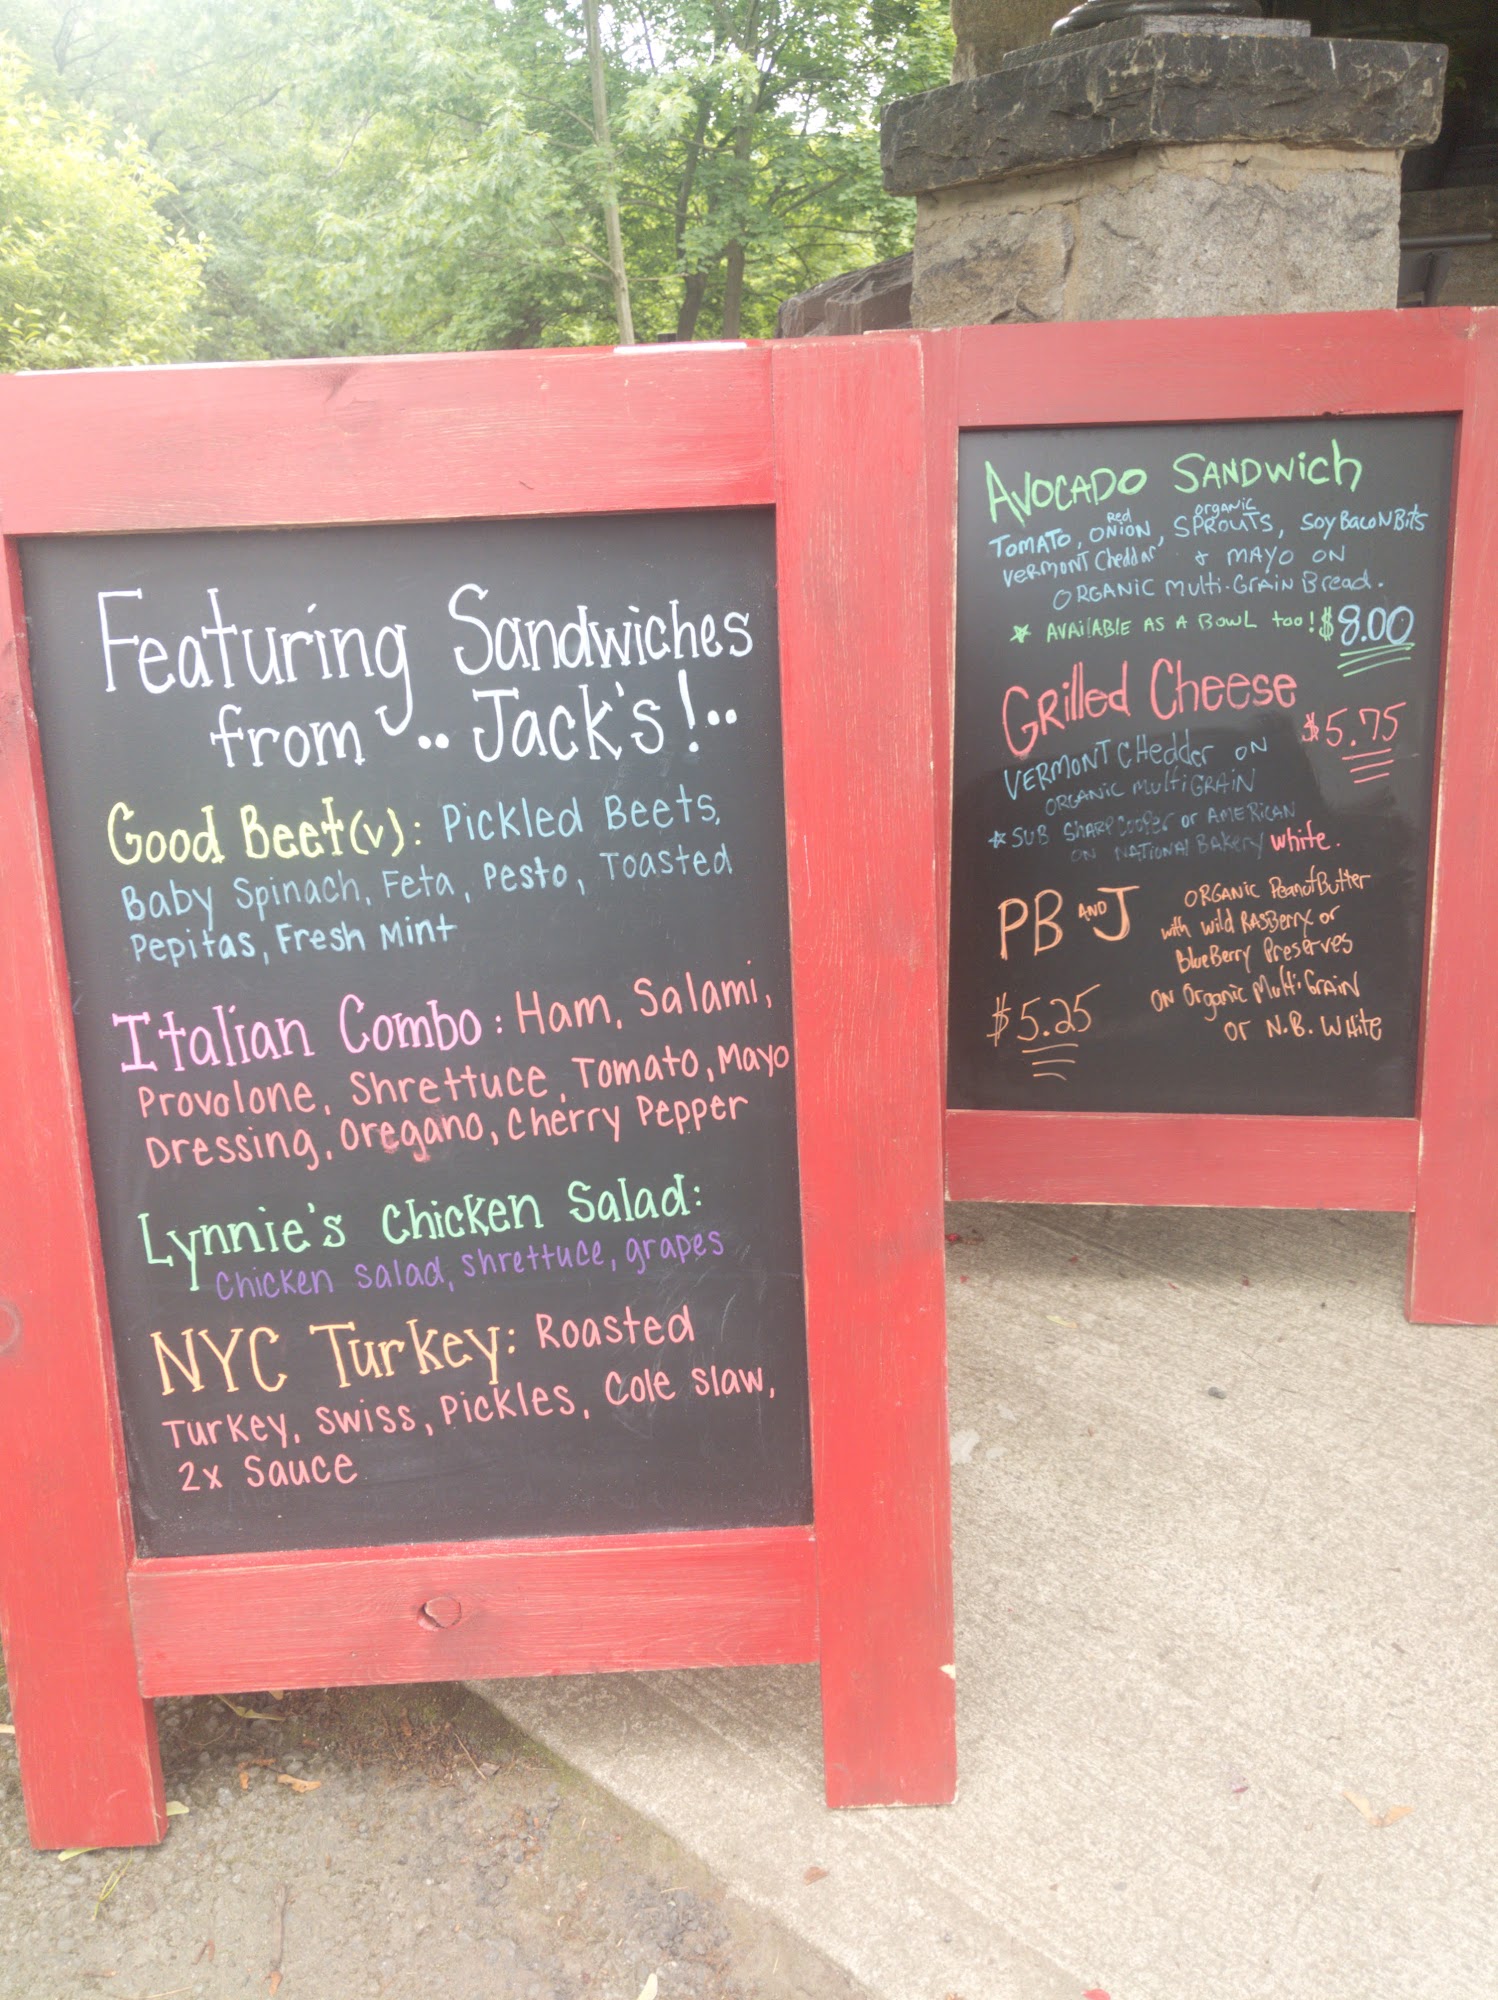 Featuring Sandwiches
from .. Jack's! ..
Good Beet(v): Pickled Beets,
Baby Spinach, Feta, Pesto, Toasted
Pepitas, Fresh Mint
Italian Combo: Ham, Salami,
Provolone, Shrettuce, Tomato, Mayo
Dressing, Oregano, Cherry Pepper
Lynnie's Chicken Salad:
Chicken Salad, shrettuce, grapes
NYC Turkey: Roasted
Turkey, Swiss, Pickles, Cole slaw,
2x Sauce
AVOCADO SANDWICh
red organic
TOMATO, ONION, SPROUTS, SOY BACON Bits
VERMONT Cheddar & MAYO ON
ORGANIC Multi-GRAIN Bread.
☆ AVAILABLE AS A BOWL too! $8.00
GRilled Cheese
$5.75
VERMONT CHedder ON
ORGANIC MultiGRAIN
☆ SUB SHARP COOPER or AMERICAN
ON NATIONAL BAKERY White.
PB AND J
$5.25
ORGANIC PeanutButter
with Wild RASBerry or
BlueBerry Preserves
ON Organic Multi-GRAIN
or N.B. WHite